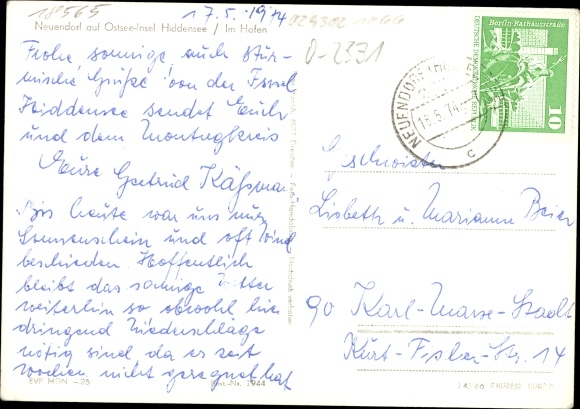 18565
17.5.1974
Neuendorf auf Ostsee-Insel Hiddensee / Im Hafen
0-2371
Frohe, sonnige, auch stür-
mische Grüße von der Insel
Hiddensee sendet Euch
und dem Montagkreis
Eure Gertrud
Bis heute war uns nur
Sonnenschein und oft Wind
beschieden. Hoffentlich
bleibt das sonnige Wetter
weiterhin so obwohl hier
dringend Niederschläge
nötig sind, da es seit
Wochen nicht geregnet hat
EVP MDN -,25
Best.-Nr. 1944
Berlin-Rathausstraße
10
NEUENDORF
c
Geschwister
Lisbeth u. Marianne Beier
90 Karl-Marx-Stadt
Kurt-Fischer-Str. 14